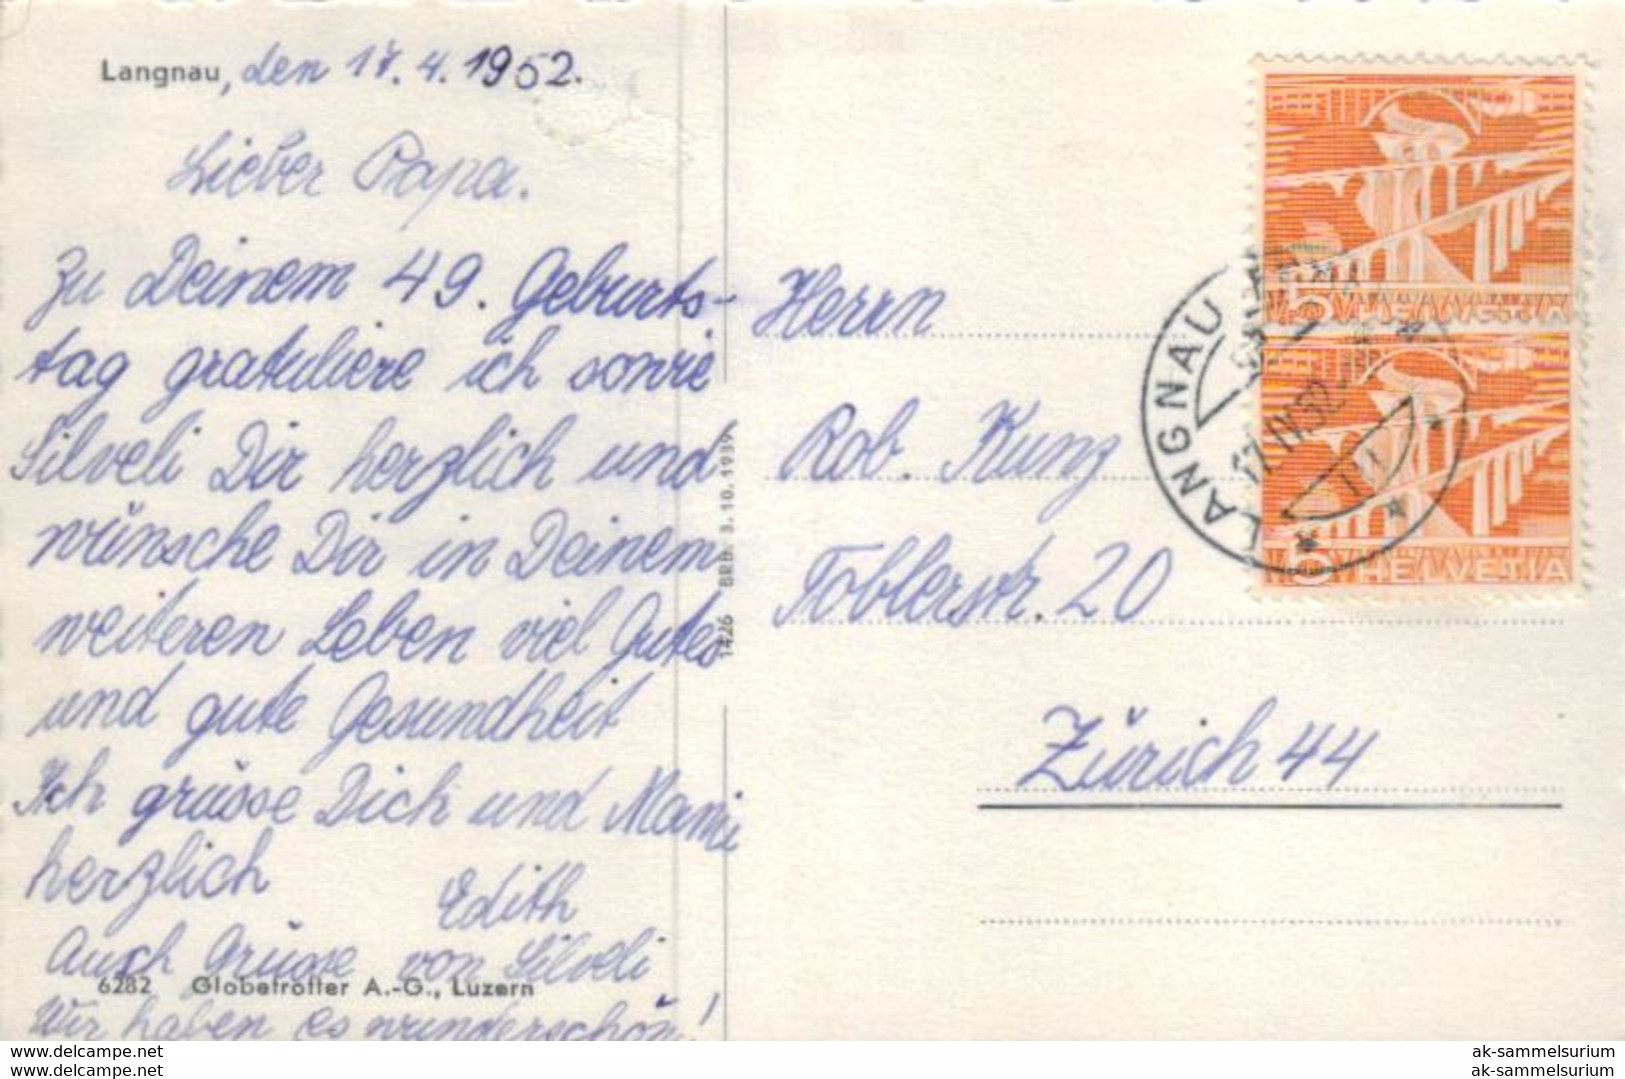 Langnau, den 17.4.1952.
Lieber Papa.
Zu Deinem 49. Geburts-
tag gratuliere ich sowie
Silveli Dir herzlich und
wünsche Dir in Deinem
weiteren Leben viel Gutes
und gute Gesundheit
Ich grüsse Dich und Mami
herzlich
Edith
Auch Grüsse von Silveli
6282 Globetrotter A.-G., Luzern
Wir haben es wunderschön!
1426 BRB. 3.10.1939
Herrn
Rob. Kunz
Toblerstr. 20
Zürich 44
LANGNAU
17.IV.52
5 HELVETIA
5 HELVETIA
ak-sammelsurium.net
ak-sammelsurium.net
ak-sammelsurium
ak-sammelsurium